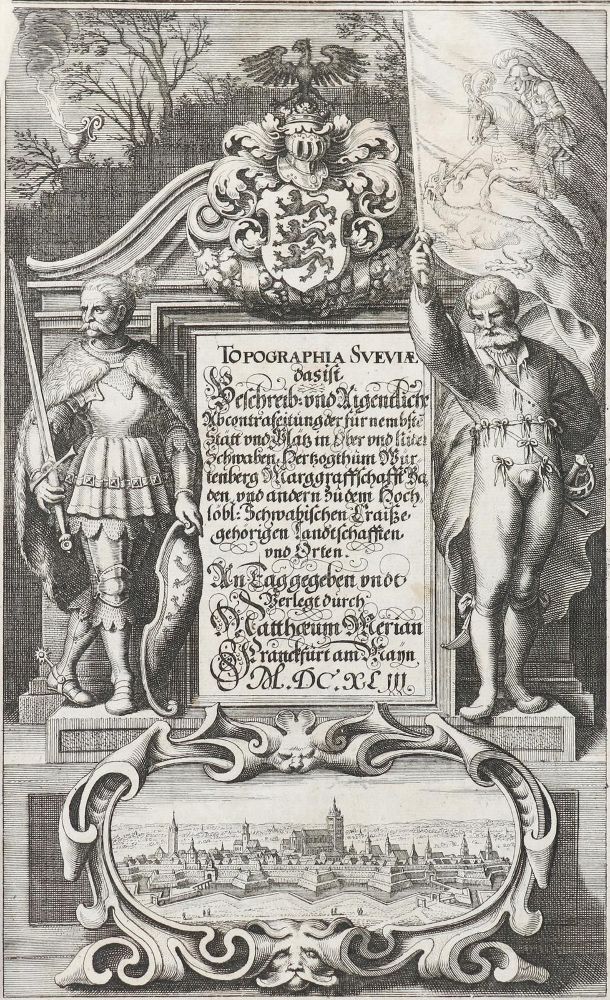 TOPOGRAPHIA SVEVIÆ
das ist
Beschreib: vnd Aigentliche
Abcontrafeitung der fürnembste
Stätt vnd Plätz in Ober vnd Nider
Schwaben, Hertzogthum Würtenberg
tenberg Marggraffschafft Ba
den vnd andern zu dem Hoch
löbl: Schwabischen Craiße
gehörigen Landtschafften
vnd Orten.
An Tag gegeben vndt
Verlegt durch
Matthæum Merian
Franckfurt am Mayn
M.DC.XLIII